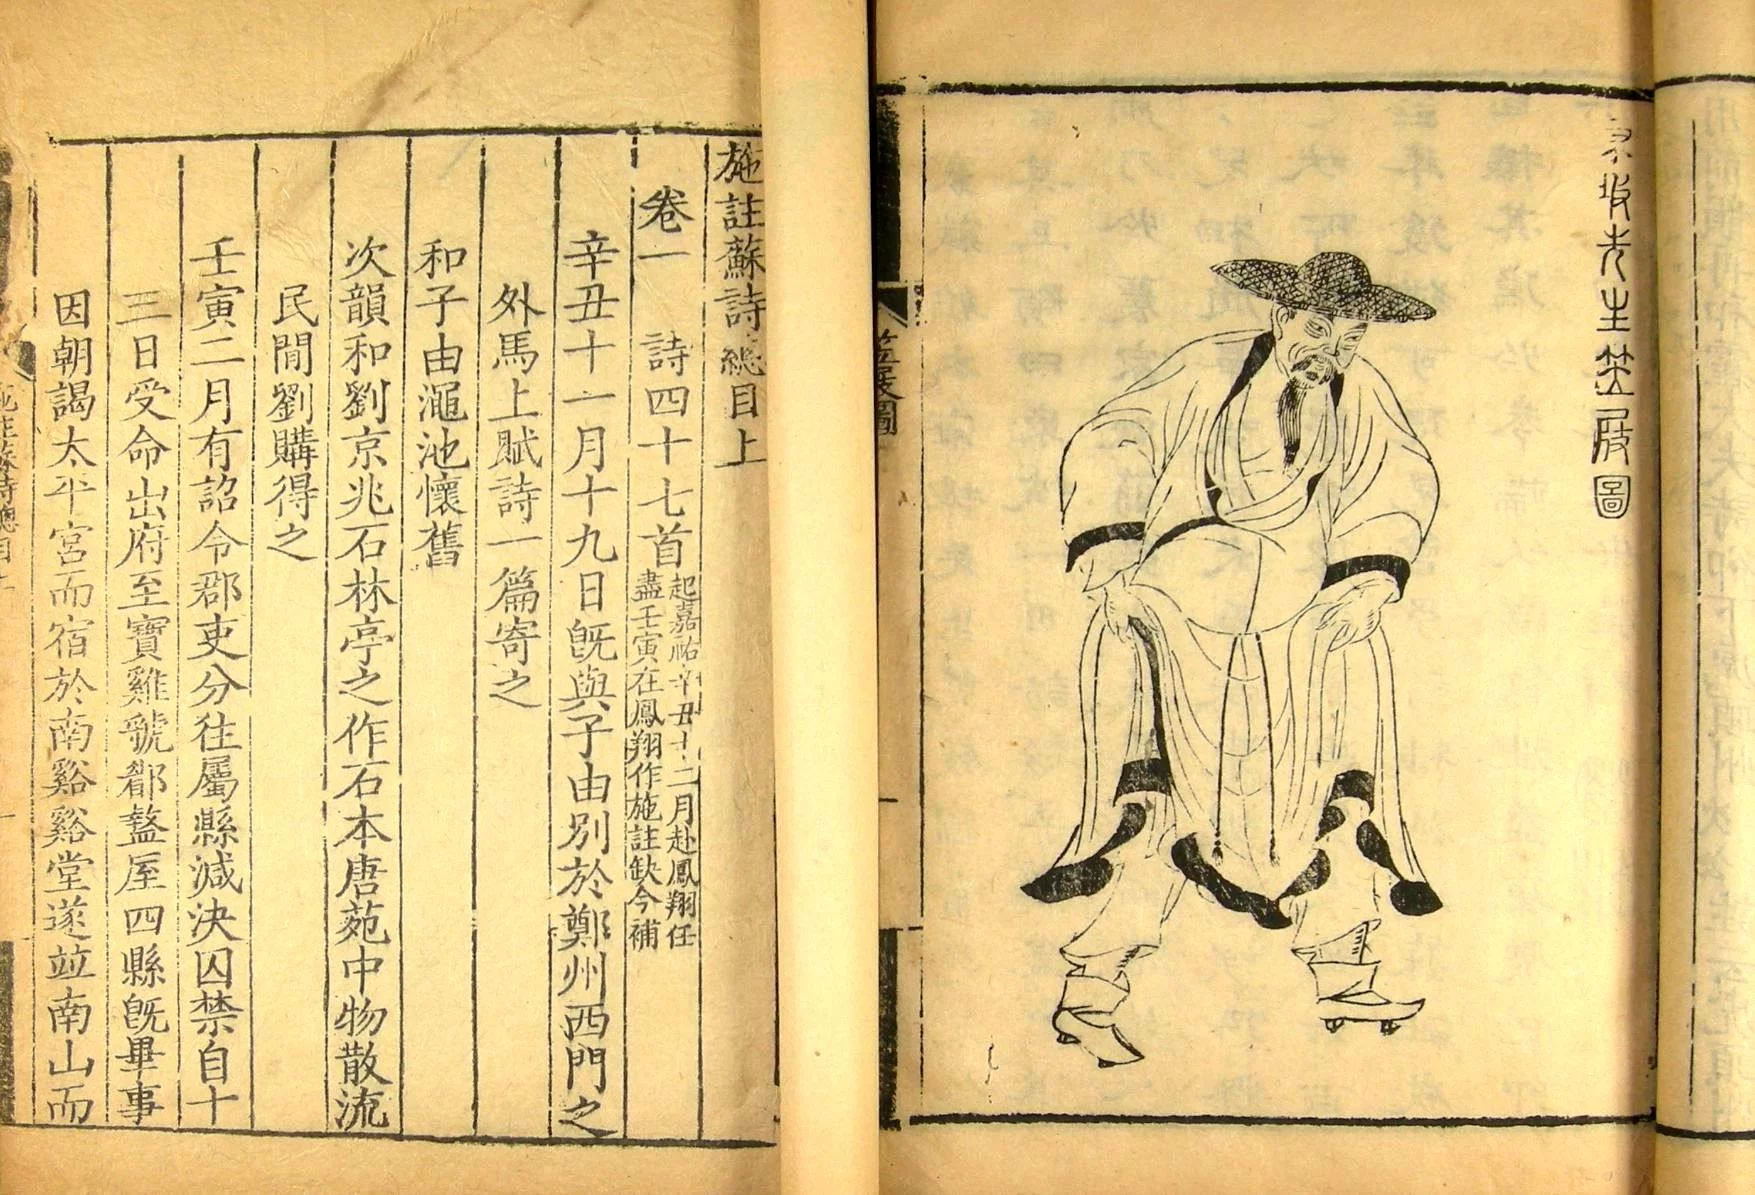 東坡先生笠屐圖
笠屐圖
施註蘇詩總目上
卷一 詩四十七首 起嘉祐辛丑十二月赴鳳翔任
盡壬寅在鳳翔作施註缺今補
辛丑十一月十九日旣與子由別於鄭州西門之
外馬上賦詩一篇寄之
和子由澠池懷舊
次韻和劉京兆石林亭之作石本唐苑中物散流
民間劉購得之
壬寅二月有詔令郡吏分往屬縣減決囚禁自十
三日受命出府至寶雞虢郿盩厔四縣旣畢事
因朝謁太平宮而宿於南谿谿堂遂竝南山而
施註蘇詩總目上